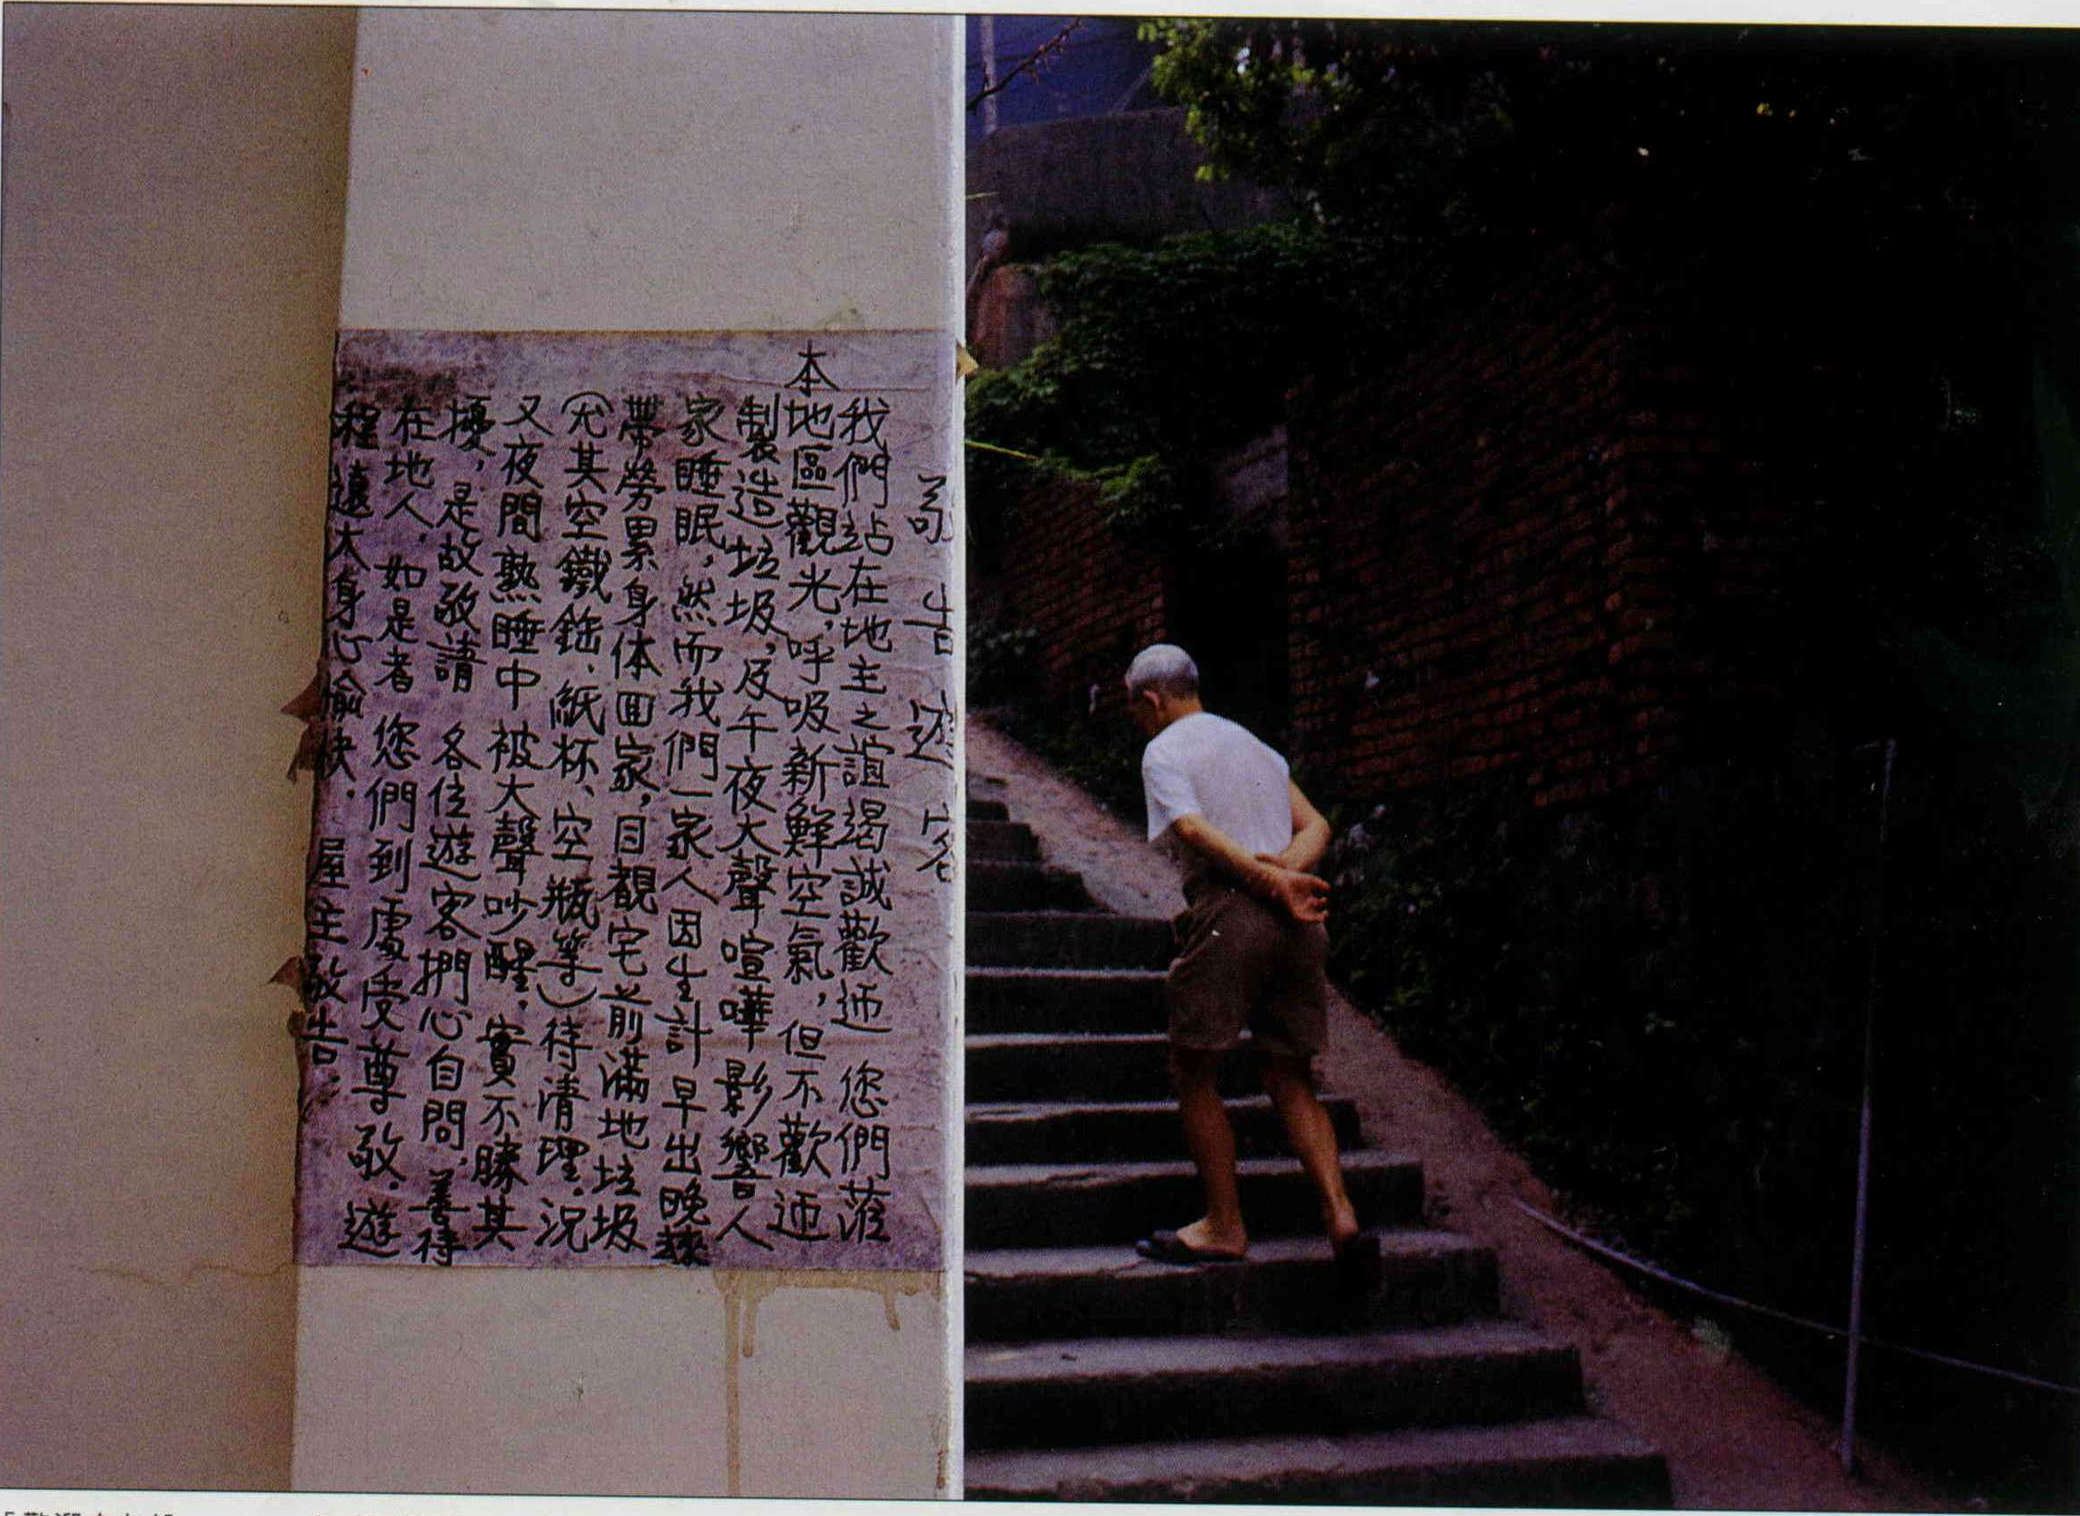 敬告遊客
我們站在地主之誼竭誠歡迊 您們蒞
本地區觀光,呼吸新鮮空氣,但不歡迊
製造垃圾,及午夜大聲喧嘩影響人
家睡眠,然而我們一家人因生計早出晚
帶勞累身体回家,目覩宅前滿地垃圾
(尤其空鐵鋁、紙杯、空瓶等)待清理.況
又夜間熟睡中被大聲吵醒,實不勝其
擾,是故敬請 各位遊客捫心自問,善待
在地人,如是者 您們到處受尊敬.遊
程遠大身心愉快. 屋主敬告.